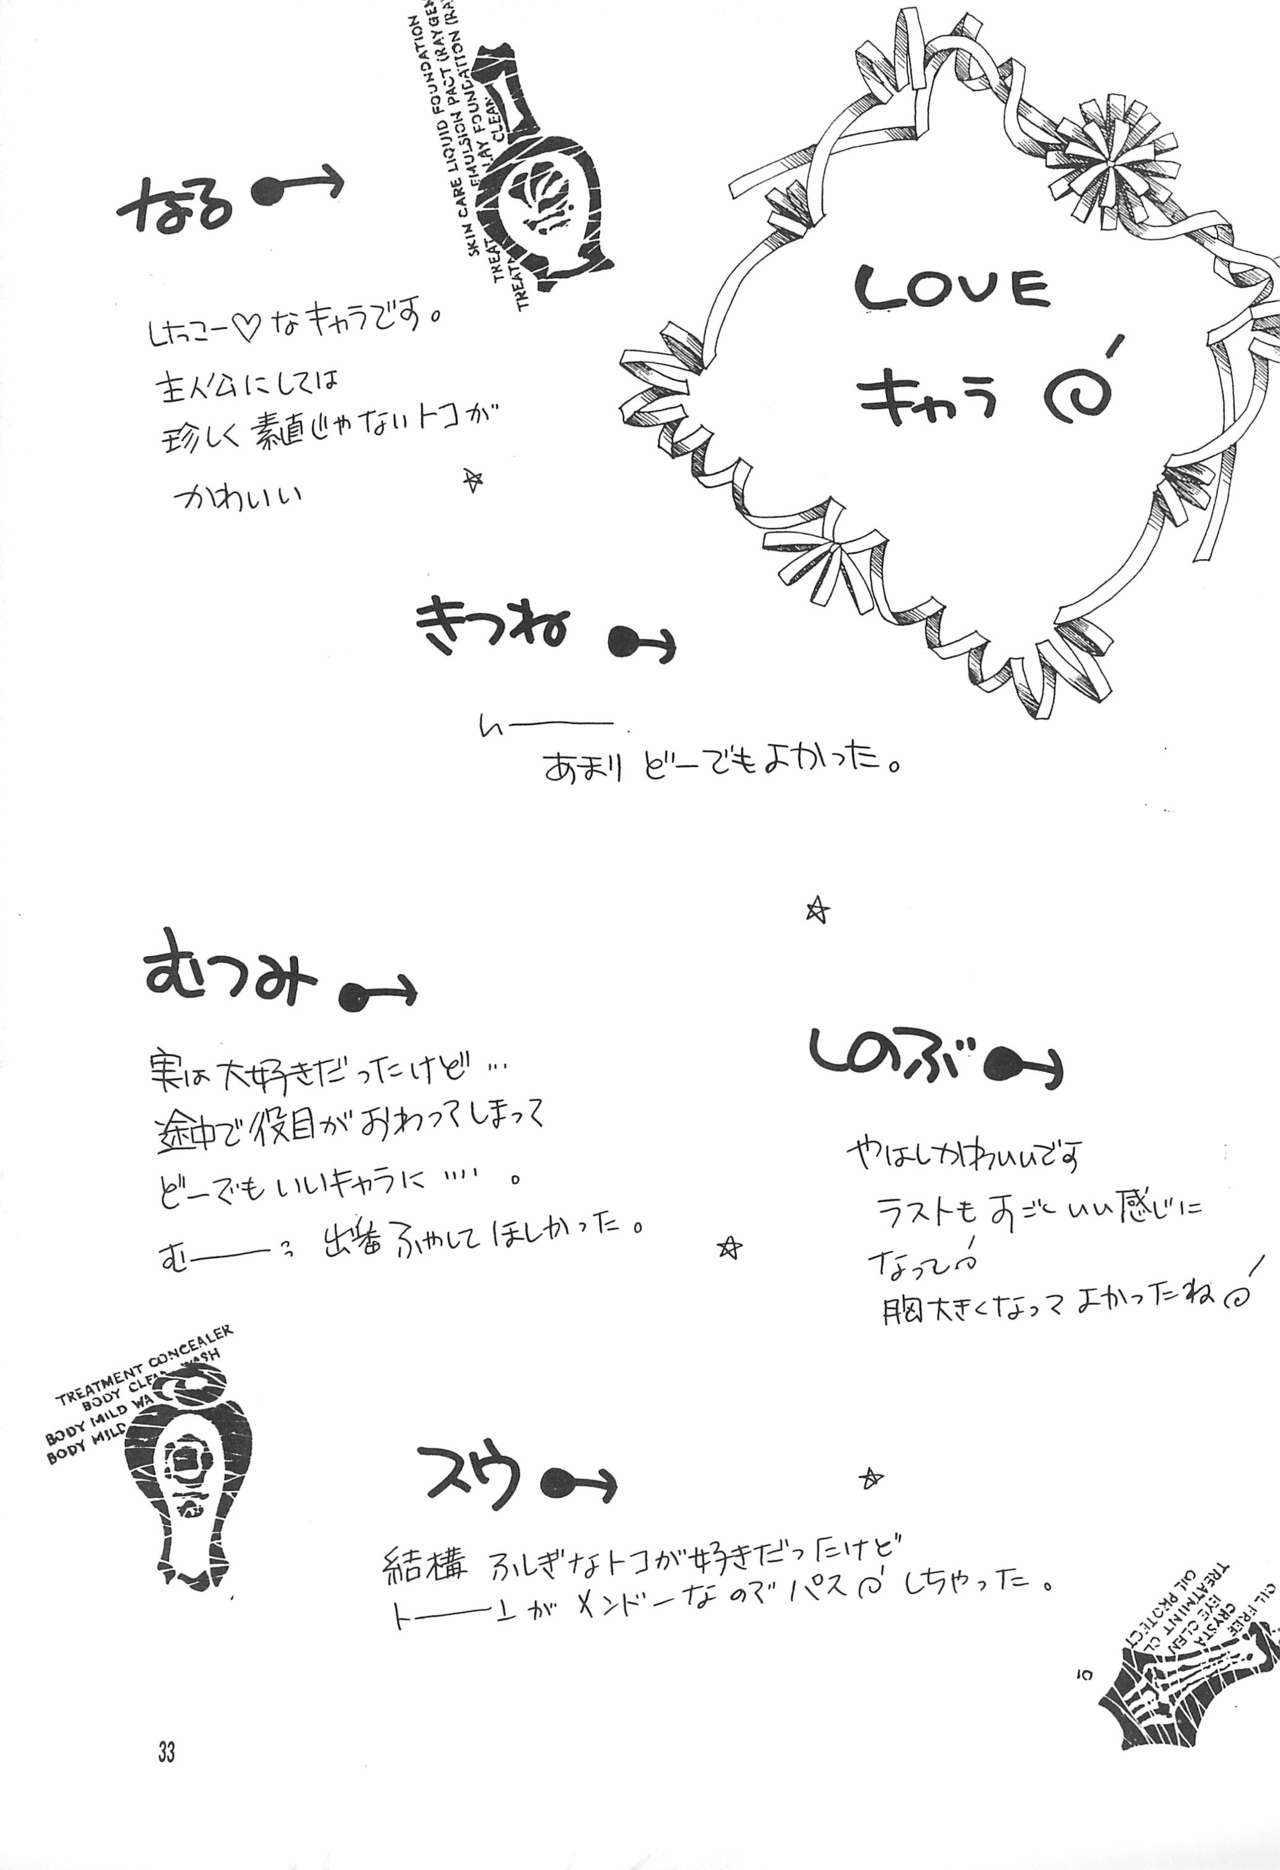 LOVE
キャラ
なる
けっこー♡なキャラです。
主人公にしては
珍しく素直じゃないトコが
かわいい
きつね
い———
あまりどーでもよかった。
むつみ
実は大好きだったけど…
途中で役目がおわってしまって
どーでもいいキャラに‥‥。
む——— 出番ふやしてほしかった。
しのぶ
やはしかわいいです
ラストもすごくいい感じに
なって
胸大きくなってよかったね
スウ
結構ふしぎなトコが好きだったけど
ト———ンがメンドーなのでパスしちゃった。
SKIN CARE LIQUID FOUNDATION
EMULSION PACT (RAY GEN
CLEAN
TREATMENT CONCEALER
BODY CLE WASH
BODY MILD WA
BODY MILD
OIL FREE
CRYSTA
EYE CLEN
TREATMINT CL
OIL PROTECT
10
33